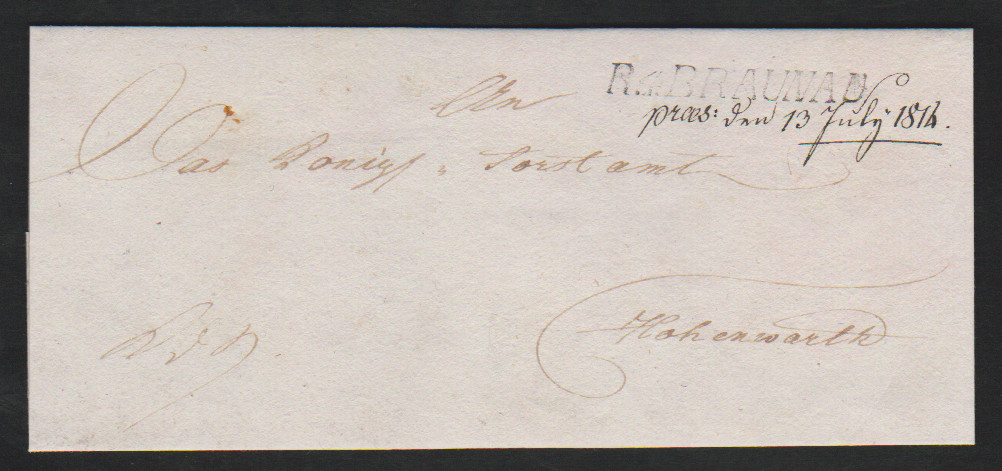 R. 4. BRAUNAU
præs: den 13 July 1814.
An
Das Königl. Forstamt
Hohenwarth
R d S.